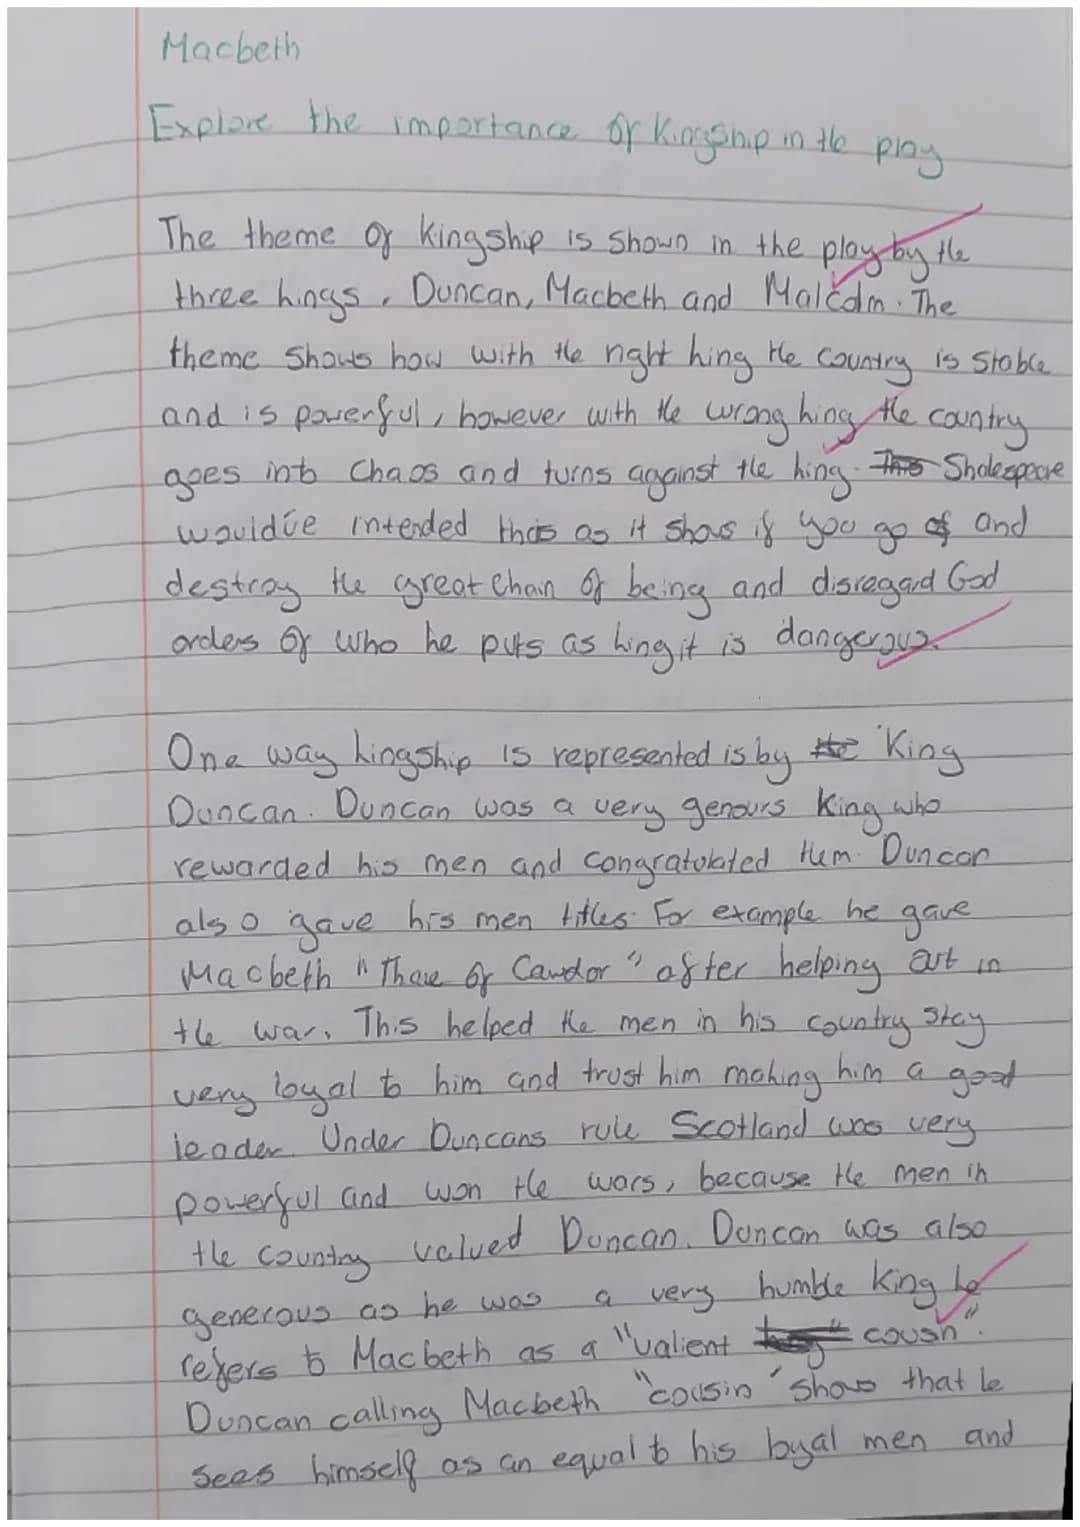 Macbeth
Explore the importance of Kingship in the play
The theme of kingship is shown in the play by the
three kings, Duncan, Macbeth and Malcolm. The
theme shows how with the right king the country is stable
and is powerful, however with the wrong king the country
goes into chaos and turns against the king. This Shakespeare
would've intended this as it shows if you go of and
destroy the great chain of being and disregard God
orders of who he puts as king it is dangerous.
One way kingship is represented is by the King
Duncan. Duncan was a very genours King who
rewarded his men and congratulated them. Duncan
also gave his men titles. For example he gave
Macbeth "Thane of Cawdor" after helping out in
the war. This helped the men in his country stay
very loyal to him and trust him making him a good
leader. Under Duncans rule Scotland was very
powerful and won the wars, because the men in
the country valued Duncan. Duncan was also
generous as he was a very humble king he
refers to Macbeth as a "valient cousin".
Duncan calling Macbeth "cousin" shows that he
sees himself as an equal to his loyal men and